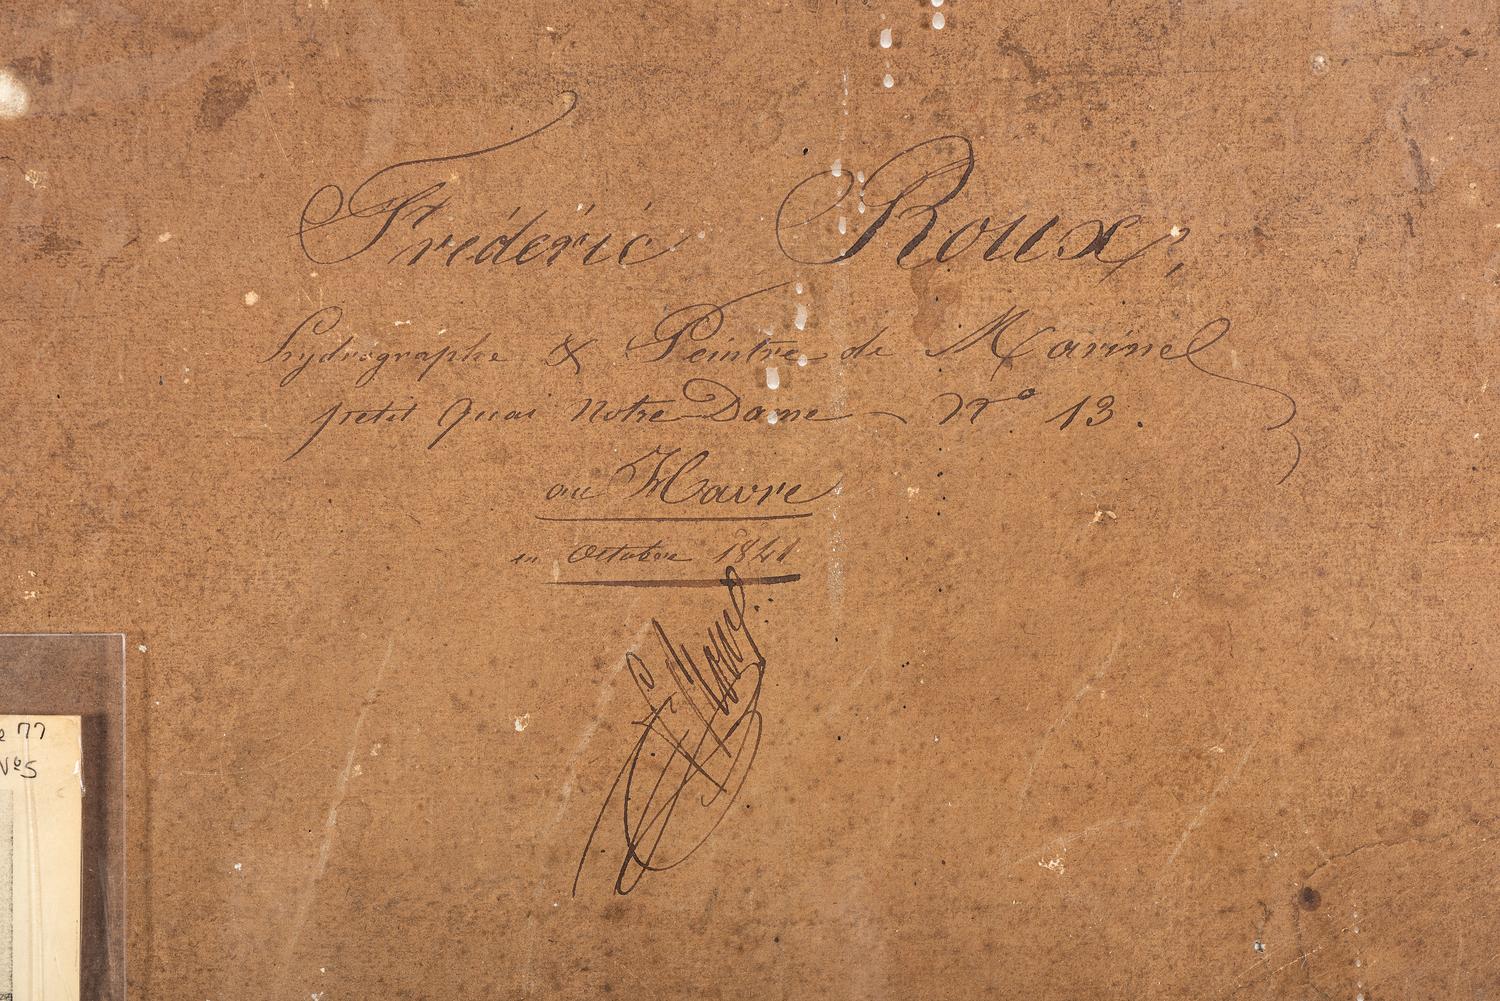 Fréderic Roux,
hydrographe & Peintre de Marine
petit Quai Notre Dame - N° 13.
au Havre
en Octobre 1841
F. Roux
77
No5